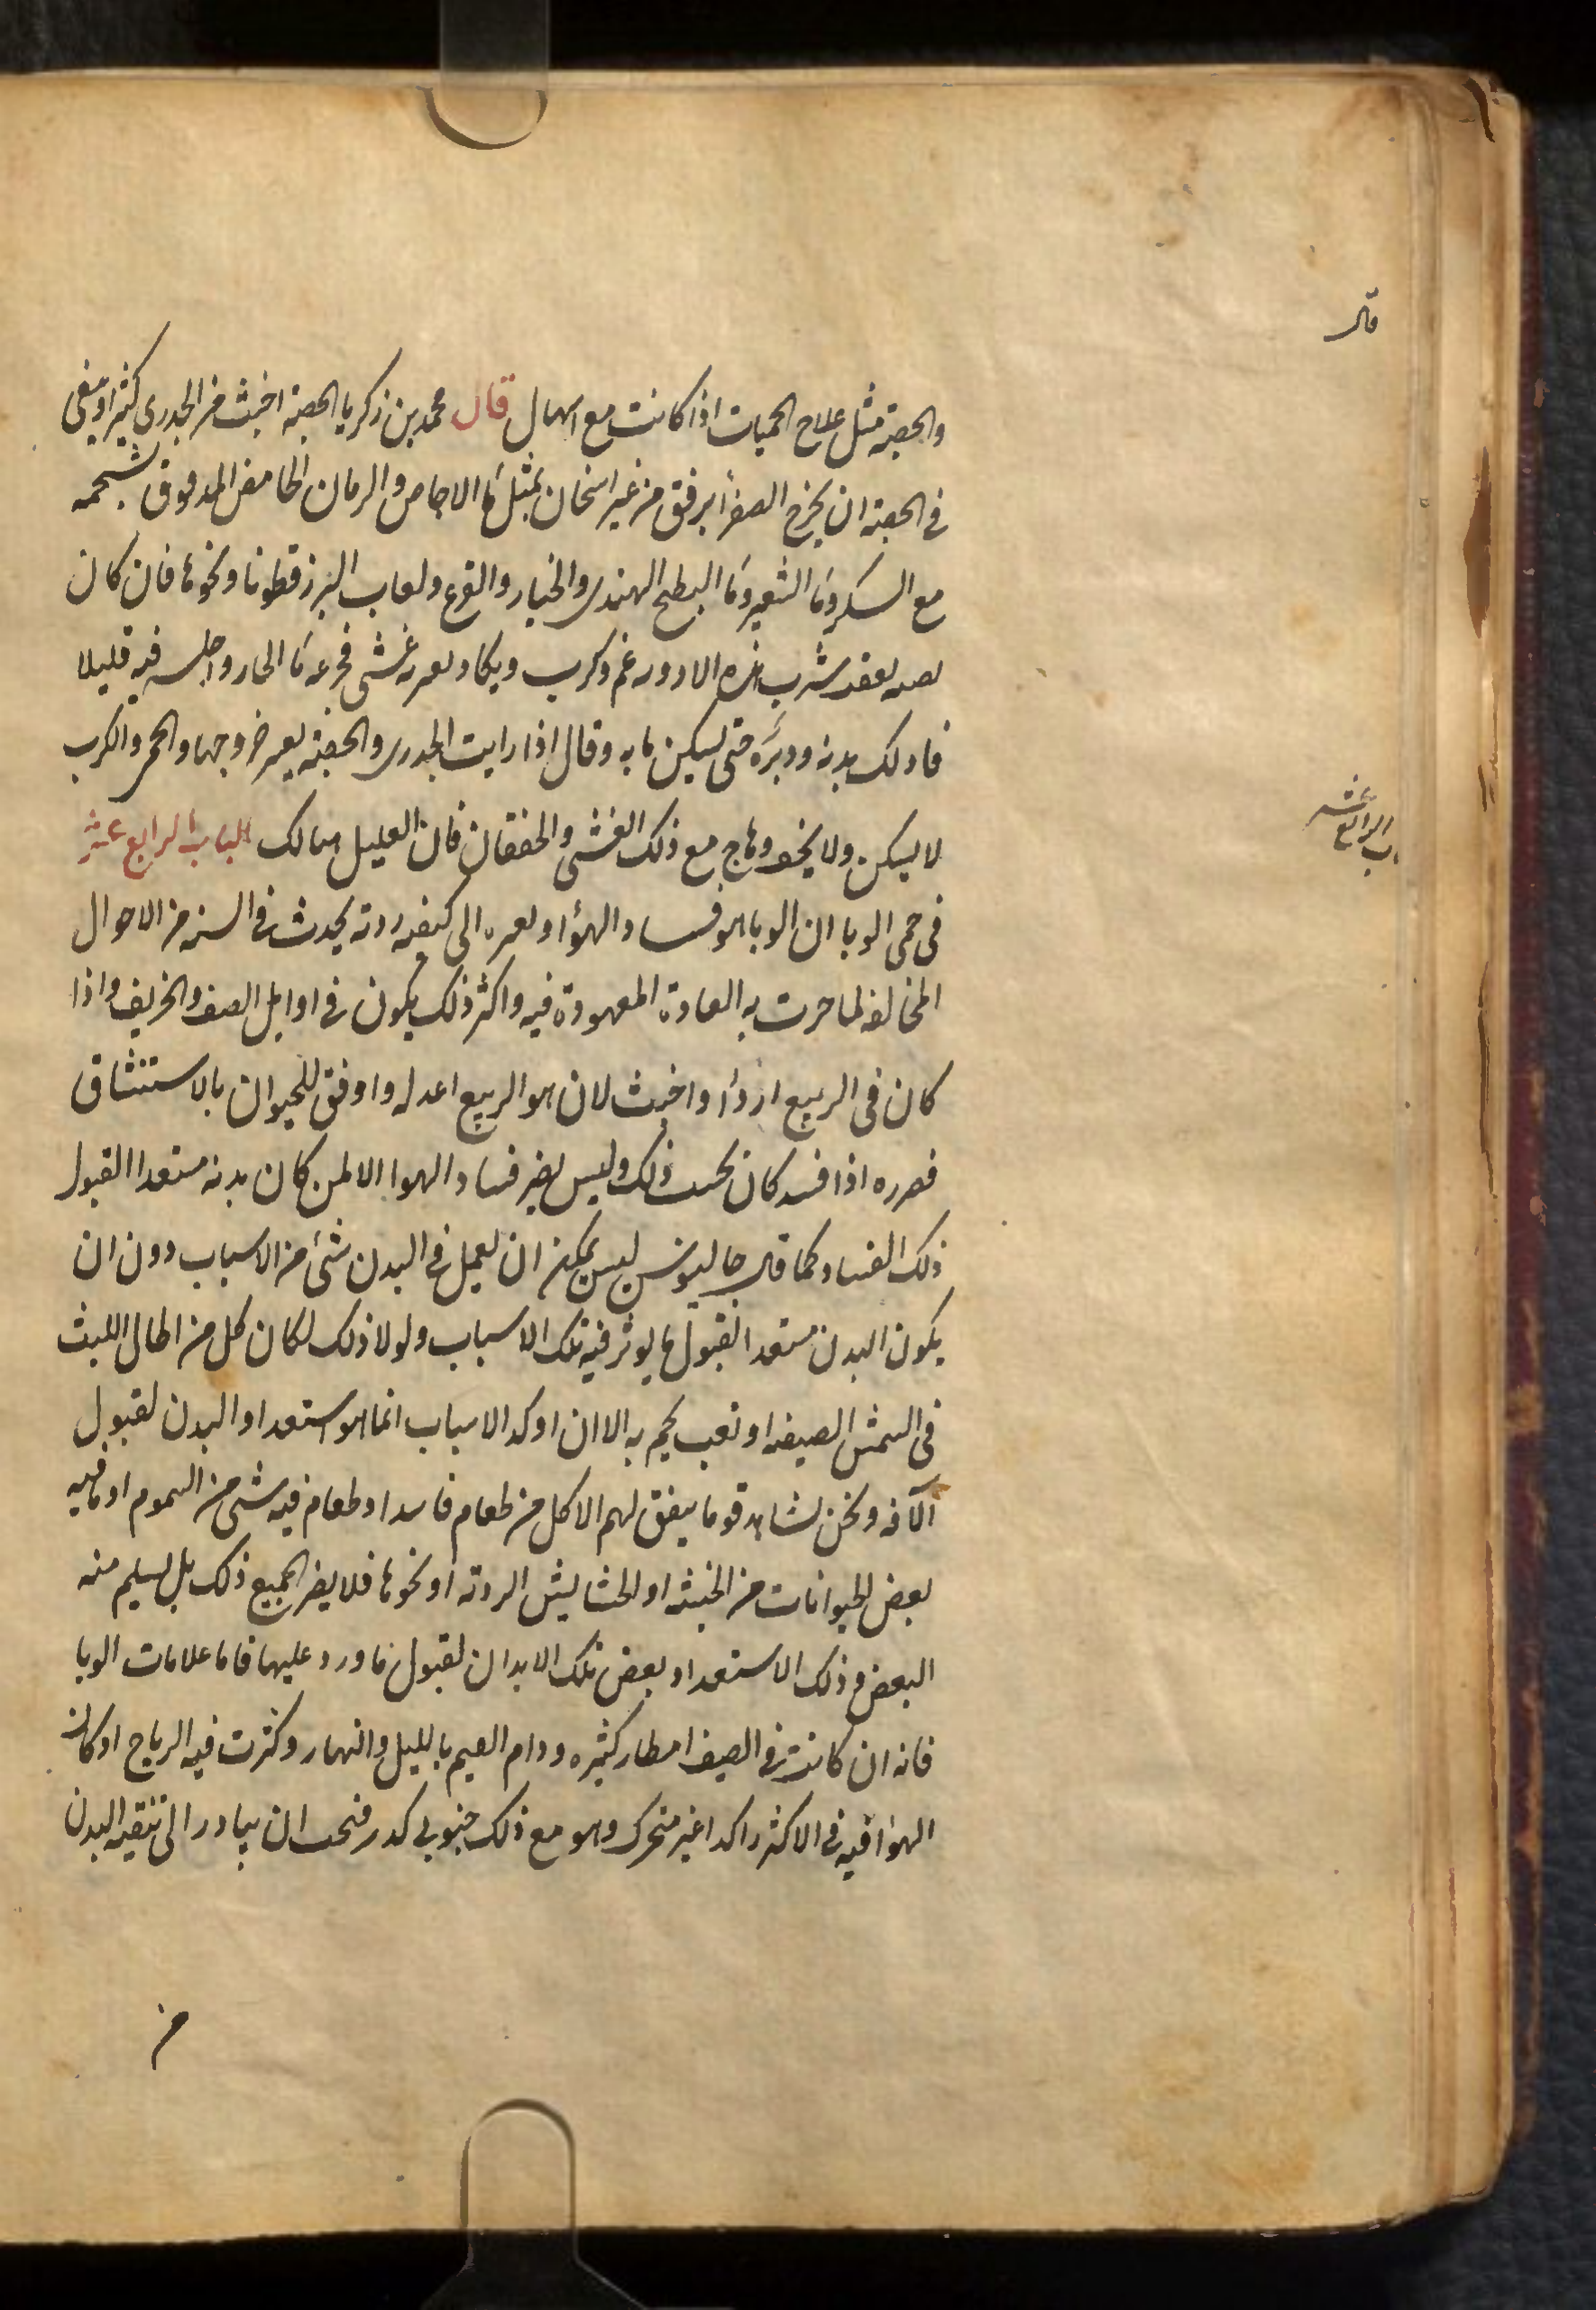 قال
والحصبة مثل علاج الحميات اذا كانت مع اسهال قال محمد بن زكريا الحصبة اخبث من الجدري كثيرا وينبغي
في الحصبة ان يخرج الصفرأ برفق من غير اسخان بمثل مآ الاجاص والرمان الحامض المدقوق بشحمه
مع السكر ومآ الشعير ومآ البطيخ الهندي والخيار والقرع ولعاب البزرقطونا ونحوها فان كان
شرب هذه الادوية غم وكرب ويكاد غشى فجرعه مآ الحار واجلسه فيه قليلا
فادلك بدنه ودبره حتى يسكن ما به وقال اذا رايت الجدري والحصبة يعسر خروجها والحمى والكرب
لا يسكن ولا يخف وهاج مع ذلك الغشى والخفقان فان العليل هالك الباب الرابع عشر
الباب الرابع عشر
في حمى الوبا ان الوبا هو فساد الهوأ وتغيره الى كيفية ردية يحدث في السنة من الاحوال
المخالفة لما جرت به العادة المعهودة فيه واكثر ذلك يكون في اوايل الصيف والخريف واذا
كان في الربيع اردأ واخبث لان هو الربيع اعدله واوفق للحيوان بالاستنشاق
فضرره اذا فسد كان بحسب ذلك وليس يضر فساد الهوا الا لمن كان بدنه مستعدا لقبول
ذلك الفساد كما قال جالينوس ليس يمكن ان يعمل في البدن شئ من الاسباب دون ان
يكون البدن مستعدا لقبول ما يوثر فيه تلك الاسباب ولولا ذلك لكان كل من اطال اللبث
في الشمس الصيفية او تعب يحم به الا ان اوكد الاسباب انما هو استعداد البدن لقبول
الآفة ونحن نشاهد قوما يتفق لهم الاكل من طعام فاسد او طعام فيه شى من السموم او ماهيه
بعض الحيوانات من الخبيثة او الحشايش الردية او نحوها فلا يضر الجميع ذلك بل يسلم منه
البعض وذلك الاستعداد بعض تلك الابدان لقبول ما ورد عليها فاما علامات الوبا
فانه ان كانت في الصيف امطار كثيره ودام الغيم بالليل والنهار وكثرت فيه الرياح او كان
الهوأ فيه في الاكثر راكدا غير متحرك وهو مع ذلك جنوبي كدر فيجب ان يبادر الى تنقية البدن
من